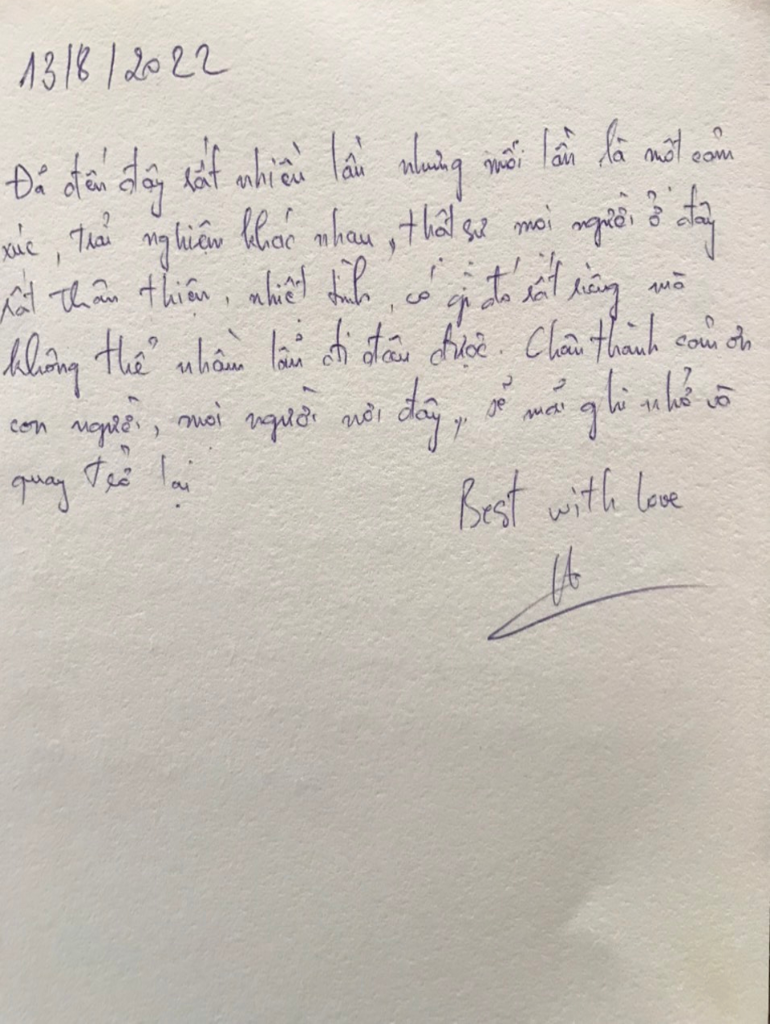 13/8/2022
Đã đến đây rất nhiều lần nhưng mỗi lần là một cảm
xúc, trải nghiệm khác nhau, thật sự mọi người ở đây
rất thân thiện, nhiệt tình, có gì đó rất riêng mà
không thể nhầm lẫn đi đâu được. Chân thành cảm ơn
con người, mọi người nơi đây, sẽ mãi ghi nhớ và
quay trở lại
Best with love